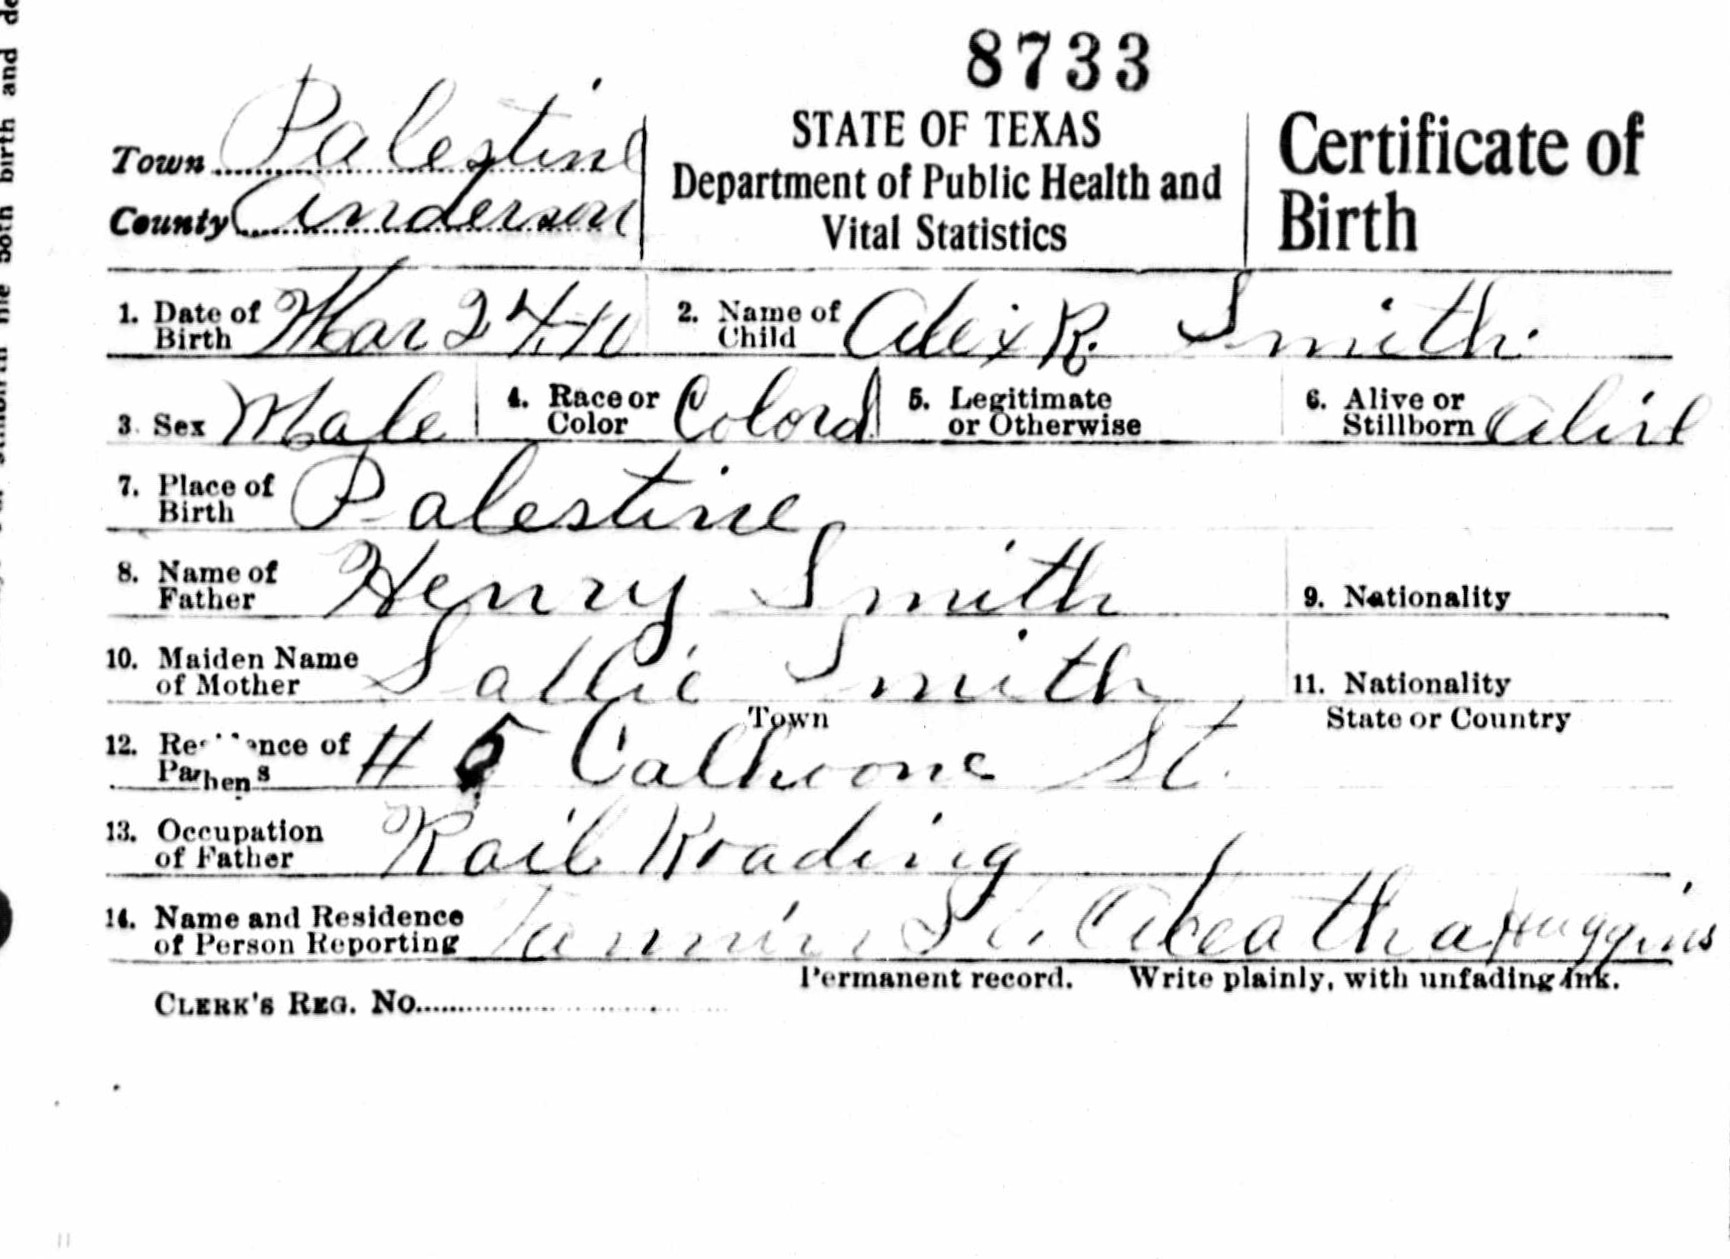 8733
Town Palestine
County Anderson
STATE OF TEXAS
Department of Public Health and
Vital Statistics
Certificate of
Birth
1. Date of Birth Mar 24-10
2. Name of Child Alex R. Smith
3. Sex Male
4. Race or Color Colord
5. Legitimate or Otherwise
6. Alive or Stillborn Alive
7. Place of Birth Palestine
8. Name of Father Henry Smith
9. Nationality
10. Maiden Name of Mother Sallie Smith
11. Nationality
Town
State or Country
12. of Calhoone St.
13. Occupation of Father Rail Roading
14. Name and Residence of Person Reporting St. Huggins
Permanent record. Write plainly, with unfading ink.
CLERK'S REG. NO.
birth and